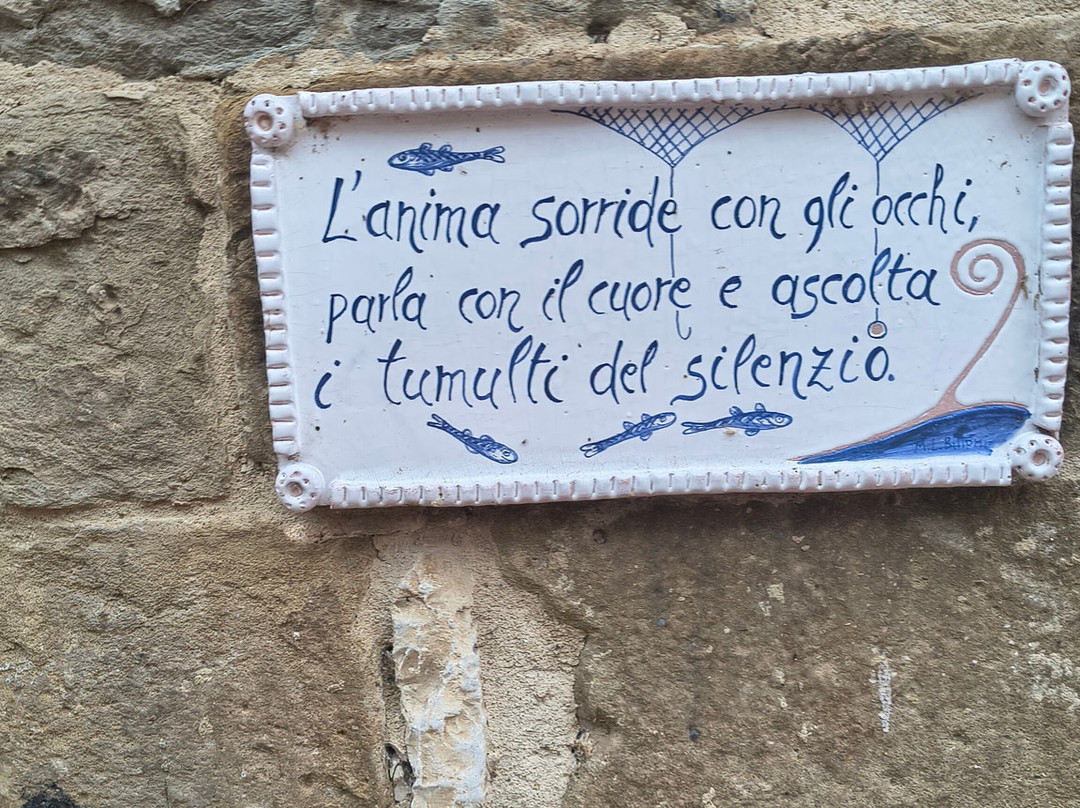 L'anima sorride con gli occhi,
parla con il cuore e ascolta
i tumulti del silenzio.